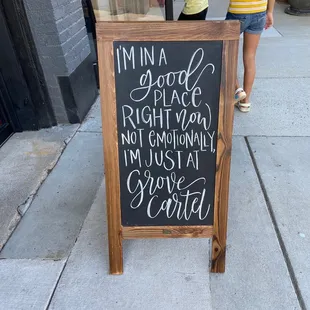 I'M IN A
good
PLACE
RIGHT now
NOT EMOTIONALLY,
I'M JUST AT
Grove
Cartel